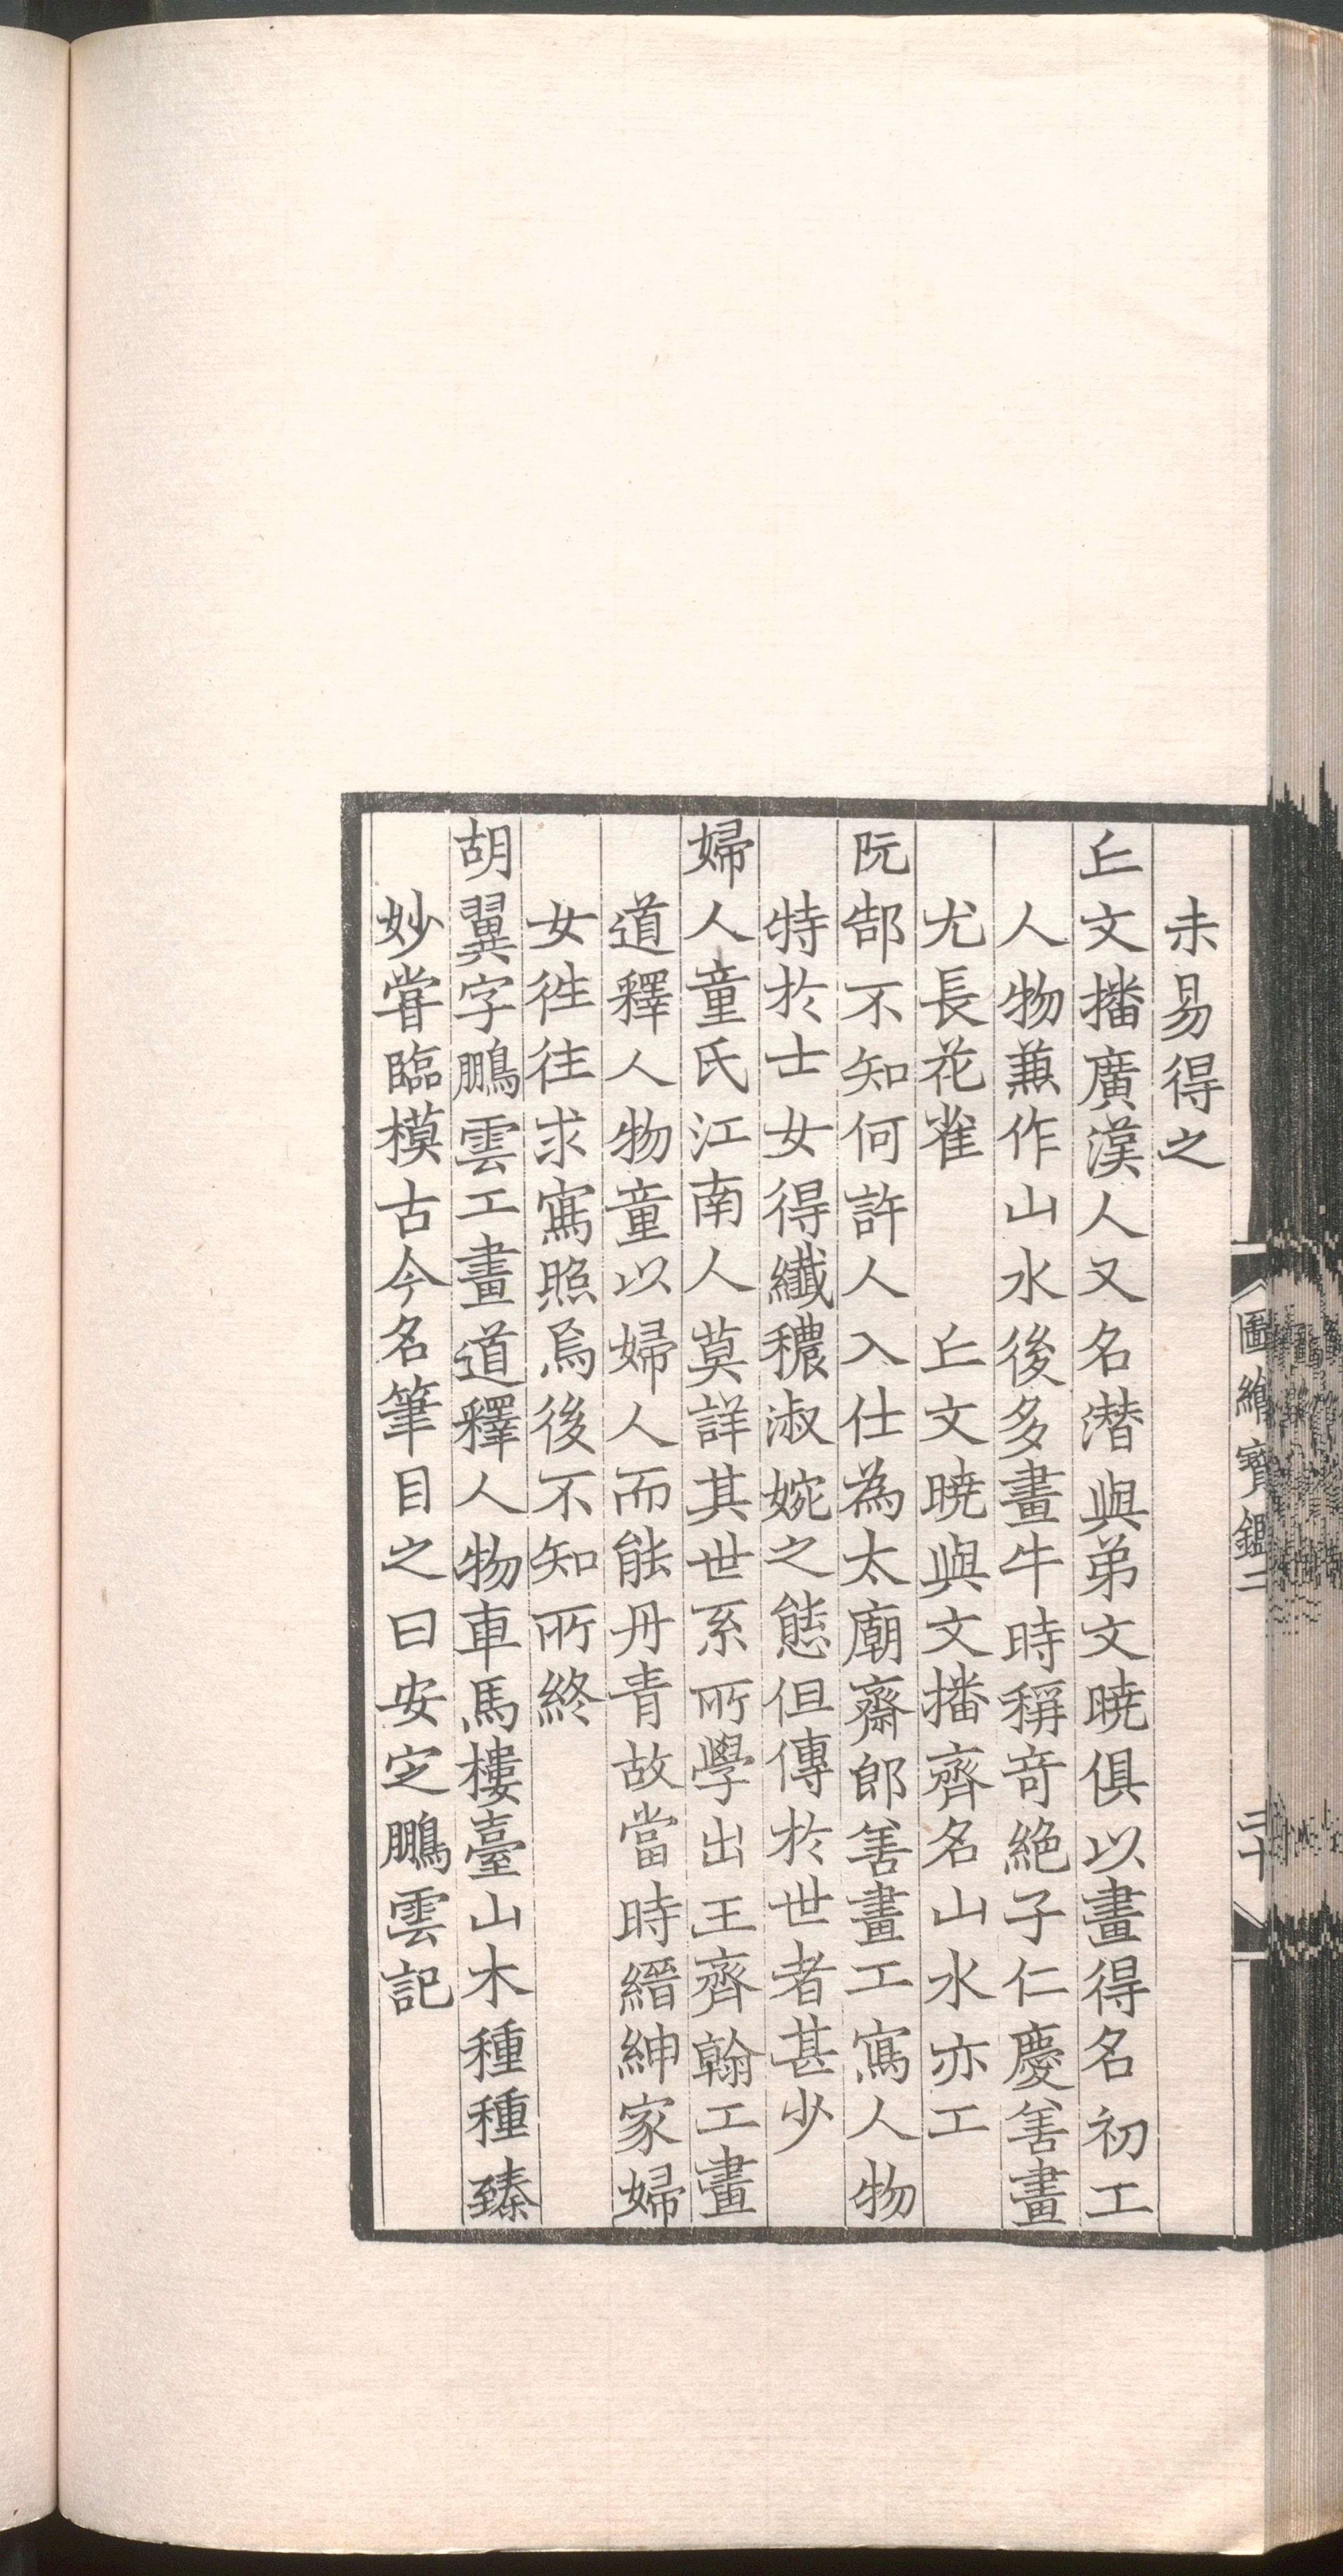 未易得之
丘文播廣漢人又名潛與弟文曉俱以畫得名初工
人物兼作山水後多畫牛時稱竒絶子仁慶善畫
尤長花雀　丘文曉與文播齊名山水亦工
阮郜不知何許人入仕為太廟齋郎善畫工寫人物
特於士女得纎穠淑婉之態但傳於世者甚少
婦人童氏江南人莫詳其世系所學出王齊翰工畫
道釋人物童以婦人而能丹青故當時縉紳家婦
女徃往求寫照焉後不知所終
胡翼字鵬雲工畫道釋人物車馬樓臺山木種種臻
妙嘗臨模古今名筆目之曰安定鵬雲記
圖繪寶鑑二
二十